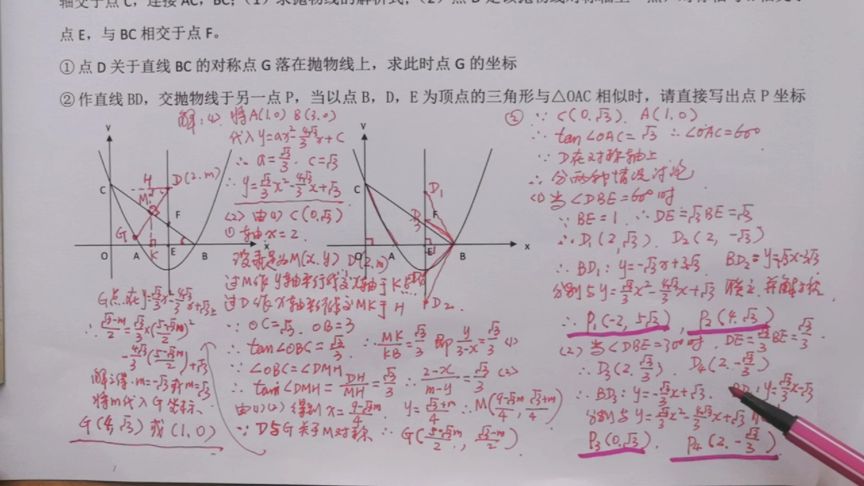 轴交于点 C，连接 AC，BC；（1）求抛物线的解析式；（2）点 D 是该抛物线对称轴上一点，
点 E，与 BC 相交于点 F。
① 点 D 关于直线 BC 的对称点 G 落在抛物线上，求此时点 G 的坐标
② 作直线 BD，交抛物线于另一点 P，当以点 B，D，E 为顶点的三角形与△OAC 相似时，请直接写出点 P 坐标
将A(1,0) B(3,0)
代入y=ax²-4√3/3x+c
∴ a=√3/3. c=√3
∴ y=√3/3x²-4√3/3x+√3
(2) 由(1) C(0,√3)
① 轴x=2.
M(x,y) D(2,m)
过M作y轴平行线交x轴于K
过D作x轴平行线交MK于H
∵ OC=√3. OB=3
∴ tan∠OBC=√3/3. ∴ MK/KB=√3/3 即 y/3-x=√3/3 (1)
∵ ∠OBC=∠DMH
∴ tan∠DMH=DH/MH=√3/3 ∴ 2-x/m-y=√3/3 (2)
由(1)(2)得到 x=9-√3m/4 y=√3+m/4 ∴ M(9-√3m/4, √3+m/4)
∵ D与G关于M对称 ∴ G(5-√3m/2, √3-m/2)
G点在y=√3/3x²-4√3/3x+√3上
∴ √3-m/2=√3/3×(5-√3m/2)²
-4√3/3(5-√3m/2)+√3
解得 m=-√3或m=√3
将m代入G坐标
G(4,√3) 或 (1,0)
y
C
H
D(2,m)
M
F
G
O
A
K
E
B
x
y
C
D1
F
O
A
E
B
x
D2
② ∵ C(0,√3). A(1,0)
∴ tan∠OAC=√3 ∴ ∠OAC=60°
∵ D在对称轴上
∴ 分两种情况讨论
(1) 当∠DBE=60°时
∵ BE=1 ∴ DE=√3BE=√3
∴ D1(2,√3). D2(2,-√3)
∴ BD1: y=-√3x+3√3. BD2: y=√3x-3√3
分别与y=√3/3x²-4√3/3x+√3 联立
∴ P1(-2, 5√3), P2(4,√3)
(2) 当∠DBE=30°时. DE=√3/3BE=√3/3
∴ D3(2,√3/3). D4(2,-√3/3)
∴ BD3: y=-√3/3x+√3. BD4: y=√3/3x-√3
分别与y=√3/3x²-4√3/3x+√3
P3(0,√3). P4(2,-√3/3)